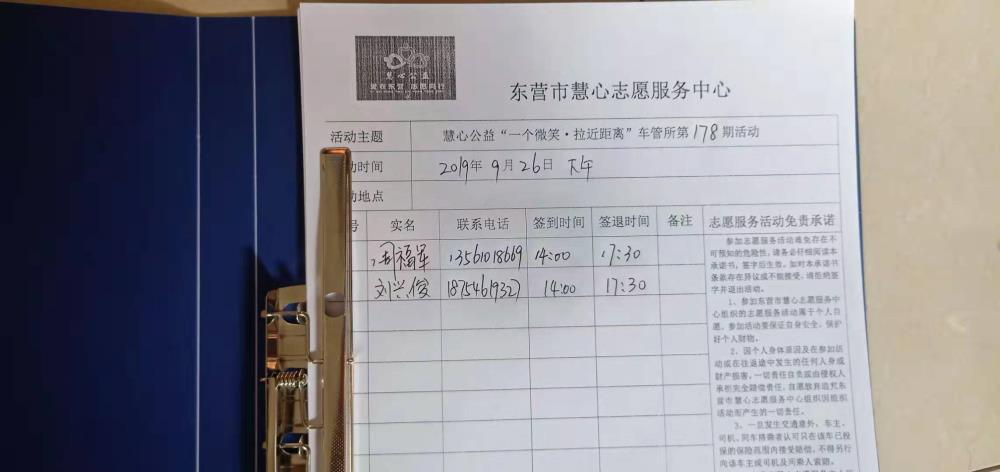 慧心公益
爱在东营 志愿同行
东营市慧心志愿服务中心
活动主题 慧心公益“一个微笑·拉近距离”车管所第178期活动
动时间 2019年9月26日 下午
动地点
号 实名 联系电话 签到时间 签退时间 备注 志愿服务活动免责承诺
周福军 13561018669 14:00 17:30
刘兴俊 18754619327 14:00 17:30
参加志愿服务活动难免存在不
可预知的危险性,请务必仔细阅读本
承诺书,签字后生效。如对本承诺书
条款存在异议或不能接受,请拒绝签
字并退出活动。
1、参加东营市慧心志愿服务中
心组织的志愿服务活动属于个人自
愿。参加活动要保证自身安全、保护
好个人财物。
2、因个人身体原因及在参加活
动或在往返途中发生的任何人身或
财产损害,一切责任自负或由侵权人
承担完全赔偿责任,自愿放弃追究东
营市慧心志愿服务中心组织因组织
活动而产生的一切责任。
3、一旦发生交通意外,车主、
司机、同车搭乘者认可只在该车已投
保的保险范围内接受赔偿,不得另行
向该车主或司机及同乘人索赔。